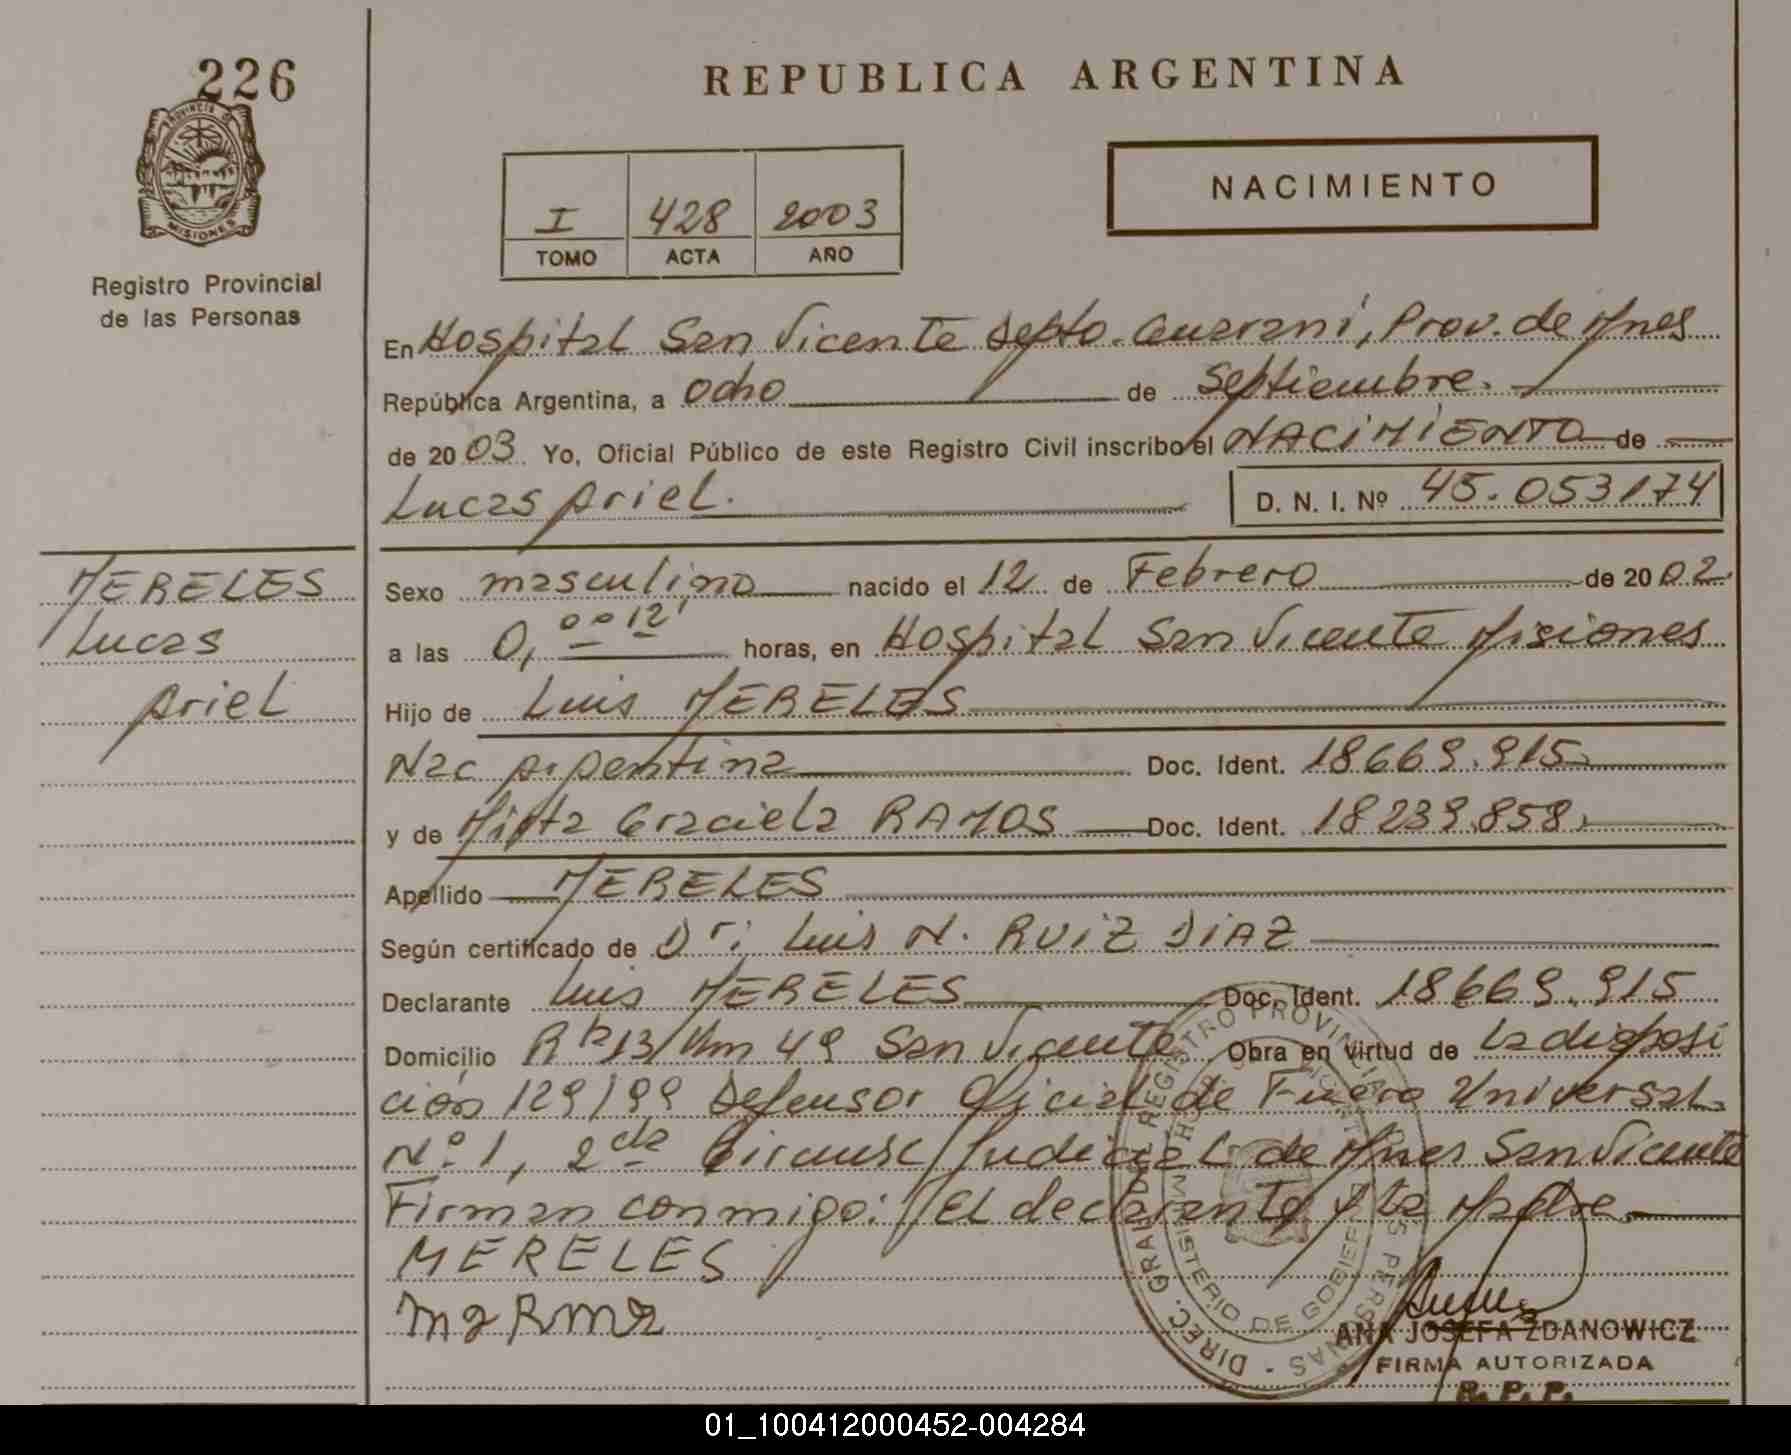 226
PROVINCIA DE
MISIONES
Registro Provincial
de las Personas
MERELES
Lucas
Ariel
REPUBLICA ARGENTINA
I 428 2003
TOMO ACTA AÑO
NACIMIENTO
En Hospital San Vicente Depto. Guaraní, Prov. de Mnes
República Argentina, a Ocho de Septiembre.
de 2003 Yo, Oficial Público de este Registro Civil inscribo el NACIMIENTO de
Lucas Ariel. D. N. I. Nº 45.053174
Sexo masculino nacido el 12 de Febrero de 2002.
a las 0,0012' horas, en Hospital San Vicente Misiones
Hijo de Luis MERELES
Nac Argentina Doc. Ident. 18669.915
y de Mirta Graciela RAMOS Doc. Ident. 18239.858.
Apellido MERELES
Según certificado de Dr: Luis N. RUIZ DIAZ
Declarante Luis MERELES Doc. Ident. 18669.915
Domicilio Rta 13 Km 49 San Vicente Obra en virtud de la disposi
ción 129/99 Defensor Oficial de Fuero Universal
Nº 1, 2da Circunsc Judicial de Mnes San Vicente
Firman conmigo: El declarante y la Madre.
MERELES
DIREC. GRAL. DEL REGISTRO PROVINCIAL DE LAS PERSONAS
MINISTERIO DE GOBIERNO
ANA JOSEFA ZDANOWICZ
FIRMA AUTORIZADA
R. P. P.
01_100412000452-004284